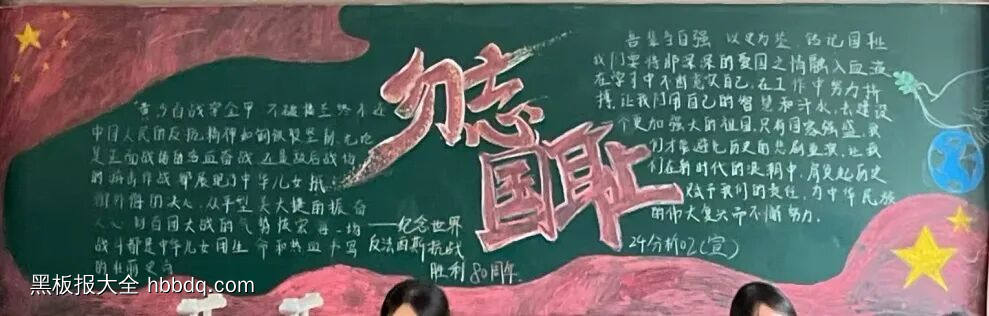 勿忘
国耻
黄沙百战穿金甲 不破楼兰终不还
中国人民的反抗精神如钢铁般坚韧,无论
是正面战场的浴血奋战 还是敌后战场
的游击作战 都展现了中华儿女抵
御外侮的决心,从平型关大捷的振奋
人心 到百团大战的气势恢宏 每一场
战斗都是中华儿女用生命和热血书写
的壮丽史诗
——纪念世界
反法西斯抗战
胜利80周年
吾辈当自强 以史为鉴,铭记国耻
我们要将那深深的爱国之情融入血液
在学习中不断充实自己,在工作中努力拼
搏,让我们用自己的智慧和汗水,去建设
一个更加强大的祖国,只有国家强盛,我
们才能避免历史的悲剧重演,让我
们在新时代的浪潮中,肩负起历史
赋予我们的责任,为中华民族
的伟大复兴而不懈努力.
24分析02(宣)
黑板报大全 hbbdq.com